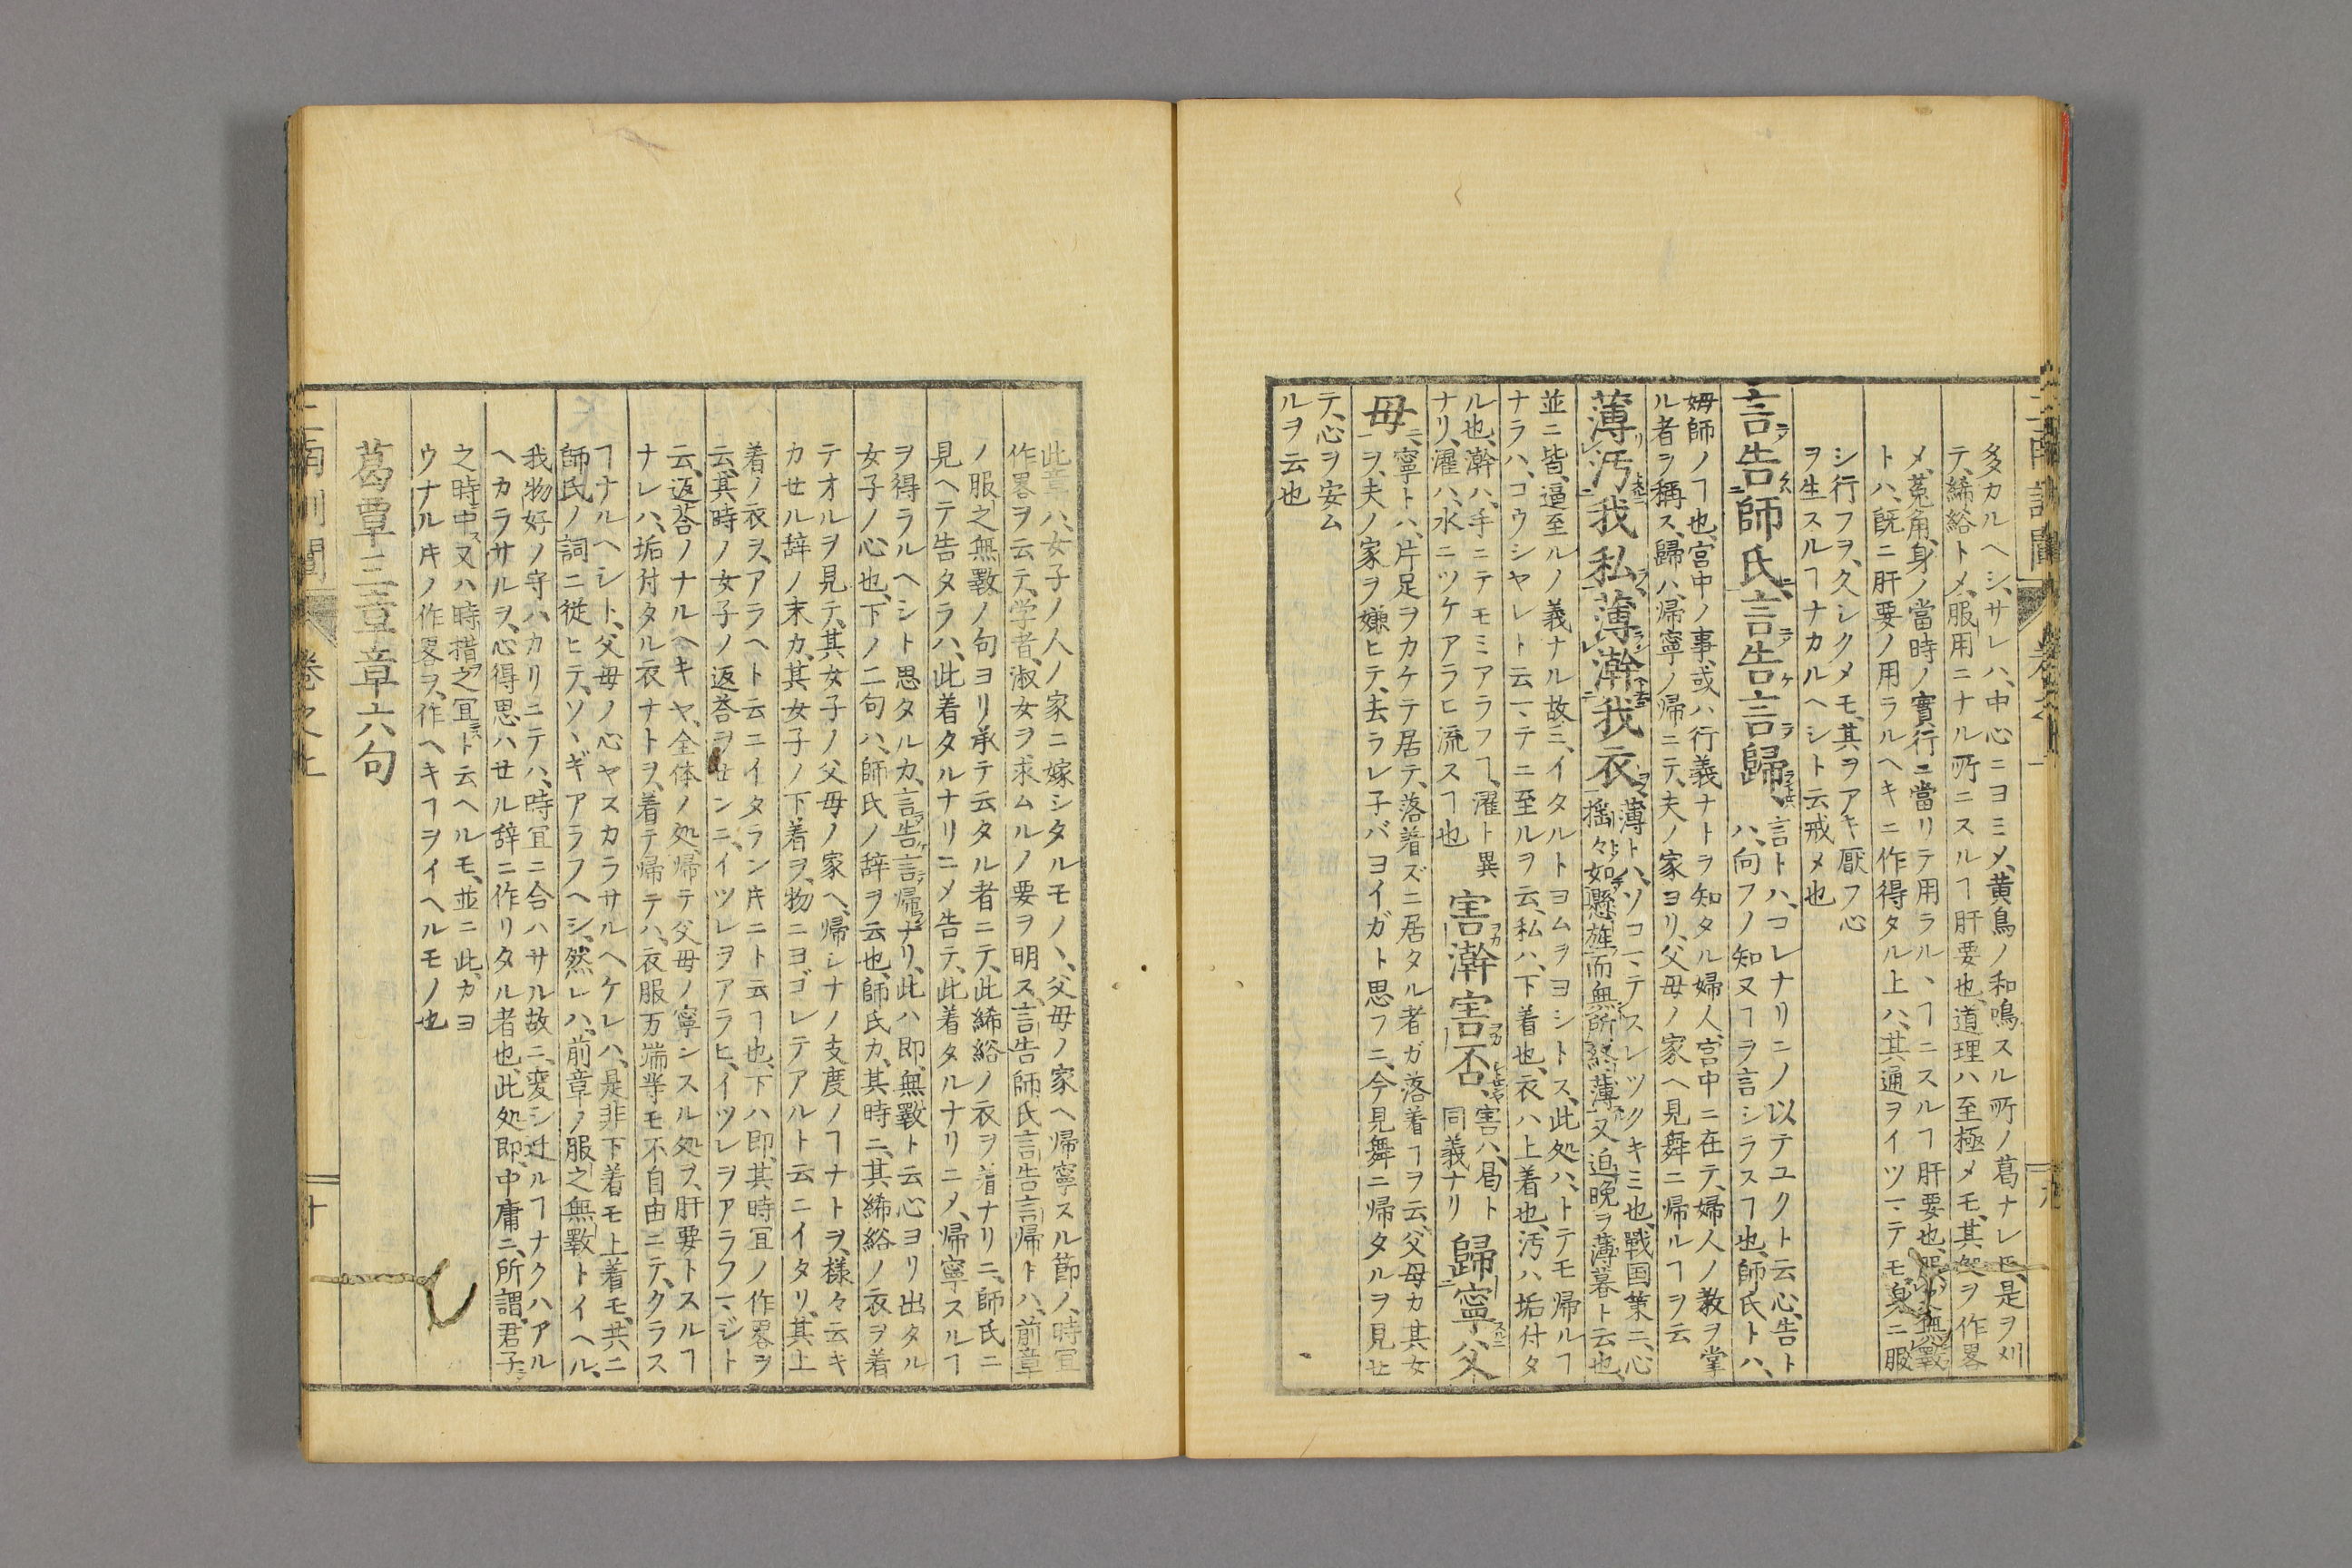 多カルヘシ、サレハ、中心ニヨミメ、黄鳥ノ和鳴スル所ノ葛ナレ𪜈、是ヲ刈
テ、絺綌トメ、服用ニナル所ニスルヿ肝要也、道理ハ至極メモ、其処ヲ作畧
メ、菟角、身ノ當時ノ實行ニ當リテ用ラル、ヿニスルヿ肝要也、
トハ、既ニ肝要ノ用ラルヘキニ作得タル上ハ、其通ヲイツマテモ身ニ服
シ行フヲ、久シクメモ、其ヲアキ厭フ心
ヲ生スルヿナカルヘシト云戒メ也
言告師氏、言告言歸、
言トハ、コレナリニノ以テユクト云心、告ト
ハ、向フノ知ヌヿヲ言シラスヿ也、師氏トハ、
姆師ノヿ也、宮中ノ事、或ハ行義ナトヲ知タル婦人、宮中ニ在テ、婦人ノ教ヲ掌
ル者ヲ稱ス、歸ハ、帰寧ノ帰ニテ、夫ノ家ヨリ、父母ノ家ヘ見舞ニ帰ルヿヲ云
薄汚我私、薄澣我衣、
薄トハ、ソコマテスレツクキミ也、戰国策ニ、心
揺々如懸旌而無所終薄、又迫晩ヲ薄暮ト云也、
並ニ皆、逼至ルノ義ナル故ニ、イタルトヨムヲヨシトス、此処ハ、トテモ帰ルヿ
ナラハ、コウシヤレト云マテニ至ルヲ云、私ハ、下着也、衣ハ上着也、汚ハ垢付タ
ル也、澣ハ、手ニテモミアラフヿ、濯ト異
ナリ、濯ハ、水ニツケアラヒ流スヿ也
害澣害否、
害ハ、曷ト
同義ナリ
歸寧父
母
寧トハ、片足ヲカケテ居テ、落着ズニ居タル者ガ落着ヿヲ云、父母カ其女
ヲ、夫ノ家ヲ嫌ヒテ、去ラレ子バヨイガト思フニ、今見舞ニ帰タルヲ見せ
テ、心ヲ安ム
ルヲ云也
此章ハ、女子ノ人ノ家ニ嫁シタルモノヽ、父母ノ家ヘ帰寧スル節ノ、時冝
作畧ヲ云テ、学者、淑女ヲ求ムルノ要ヲ明ス、言告師氏言告言帰トハ、前章
ノ服之無斁ノ句ヨリ承テ云タル者ニテ、此絺綌ノ衣ヲ着ナリニ、師氏ニ
見ヘテ告タラハ、此着タルナリニメ告テ、此着タルナリニメ、帰寧スルヿ
ヲ得ラルヘシト思タルカ、言告言帰ナリ、此ハ即、無斁ト云心ヨリ出タル
女子ノ心也、下ノ二句ハ、師氏ノ辞ヲ云也、師氏カ、其時ニ、其絺綌ノ衣ヲ着
テオルヲ見テ、其女子ノ父母ノ家ヘ、帰シナノ支度ノヿナトヲ、様々云キ
カせル辞ノ末カ、其女子ノ下着ヲ、物ニヨゴレテアルト云ニイタリ、其上
着ノ衣ヲ、アラヘト云ニイタラン𪜈ニト云ヿ也、下ハ即、其時冝ノ作畧ヲ
云、其時ノ女子ノ返荅ヲせンニ、イツレヲアラヒ、イツレヲアラフマジト
云、返荅ノナルヘキヤ、全体ノ処、帰テ父母ノ寧ンスル処ヲ、肝要トスルヿ
ナレハ、垢付タル衣ナトヲ、着テ帰テハ、衣服万端等モ不自由ニテ、クラス
ヿナルヘシト、父母ノ心ヤスカラサルヘケレハ、是非下着モ上着モ、共ニ
師氏ノ詞ニ従ヒテ、ソヽギアラフヘシ、然レハ、前章ノ服之無斁トイヘル、
我物好ノ守ハカリニテハ、時冝ニ合ハサル故ニ、変シ过ルヿナクハアル
ヘカラサルヲ、心得思ハせル辞ニ作リタル者也、此処即、中庸ニ、所謂、君子
之時中、又ハ時措之冝ト云ヘルモ、並ニ此、カヨ
ウナル𪜈ノ作畧ヲ、作ヘキヿヲイヘルモノ也
葛覃三章章六句
卷之上
十